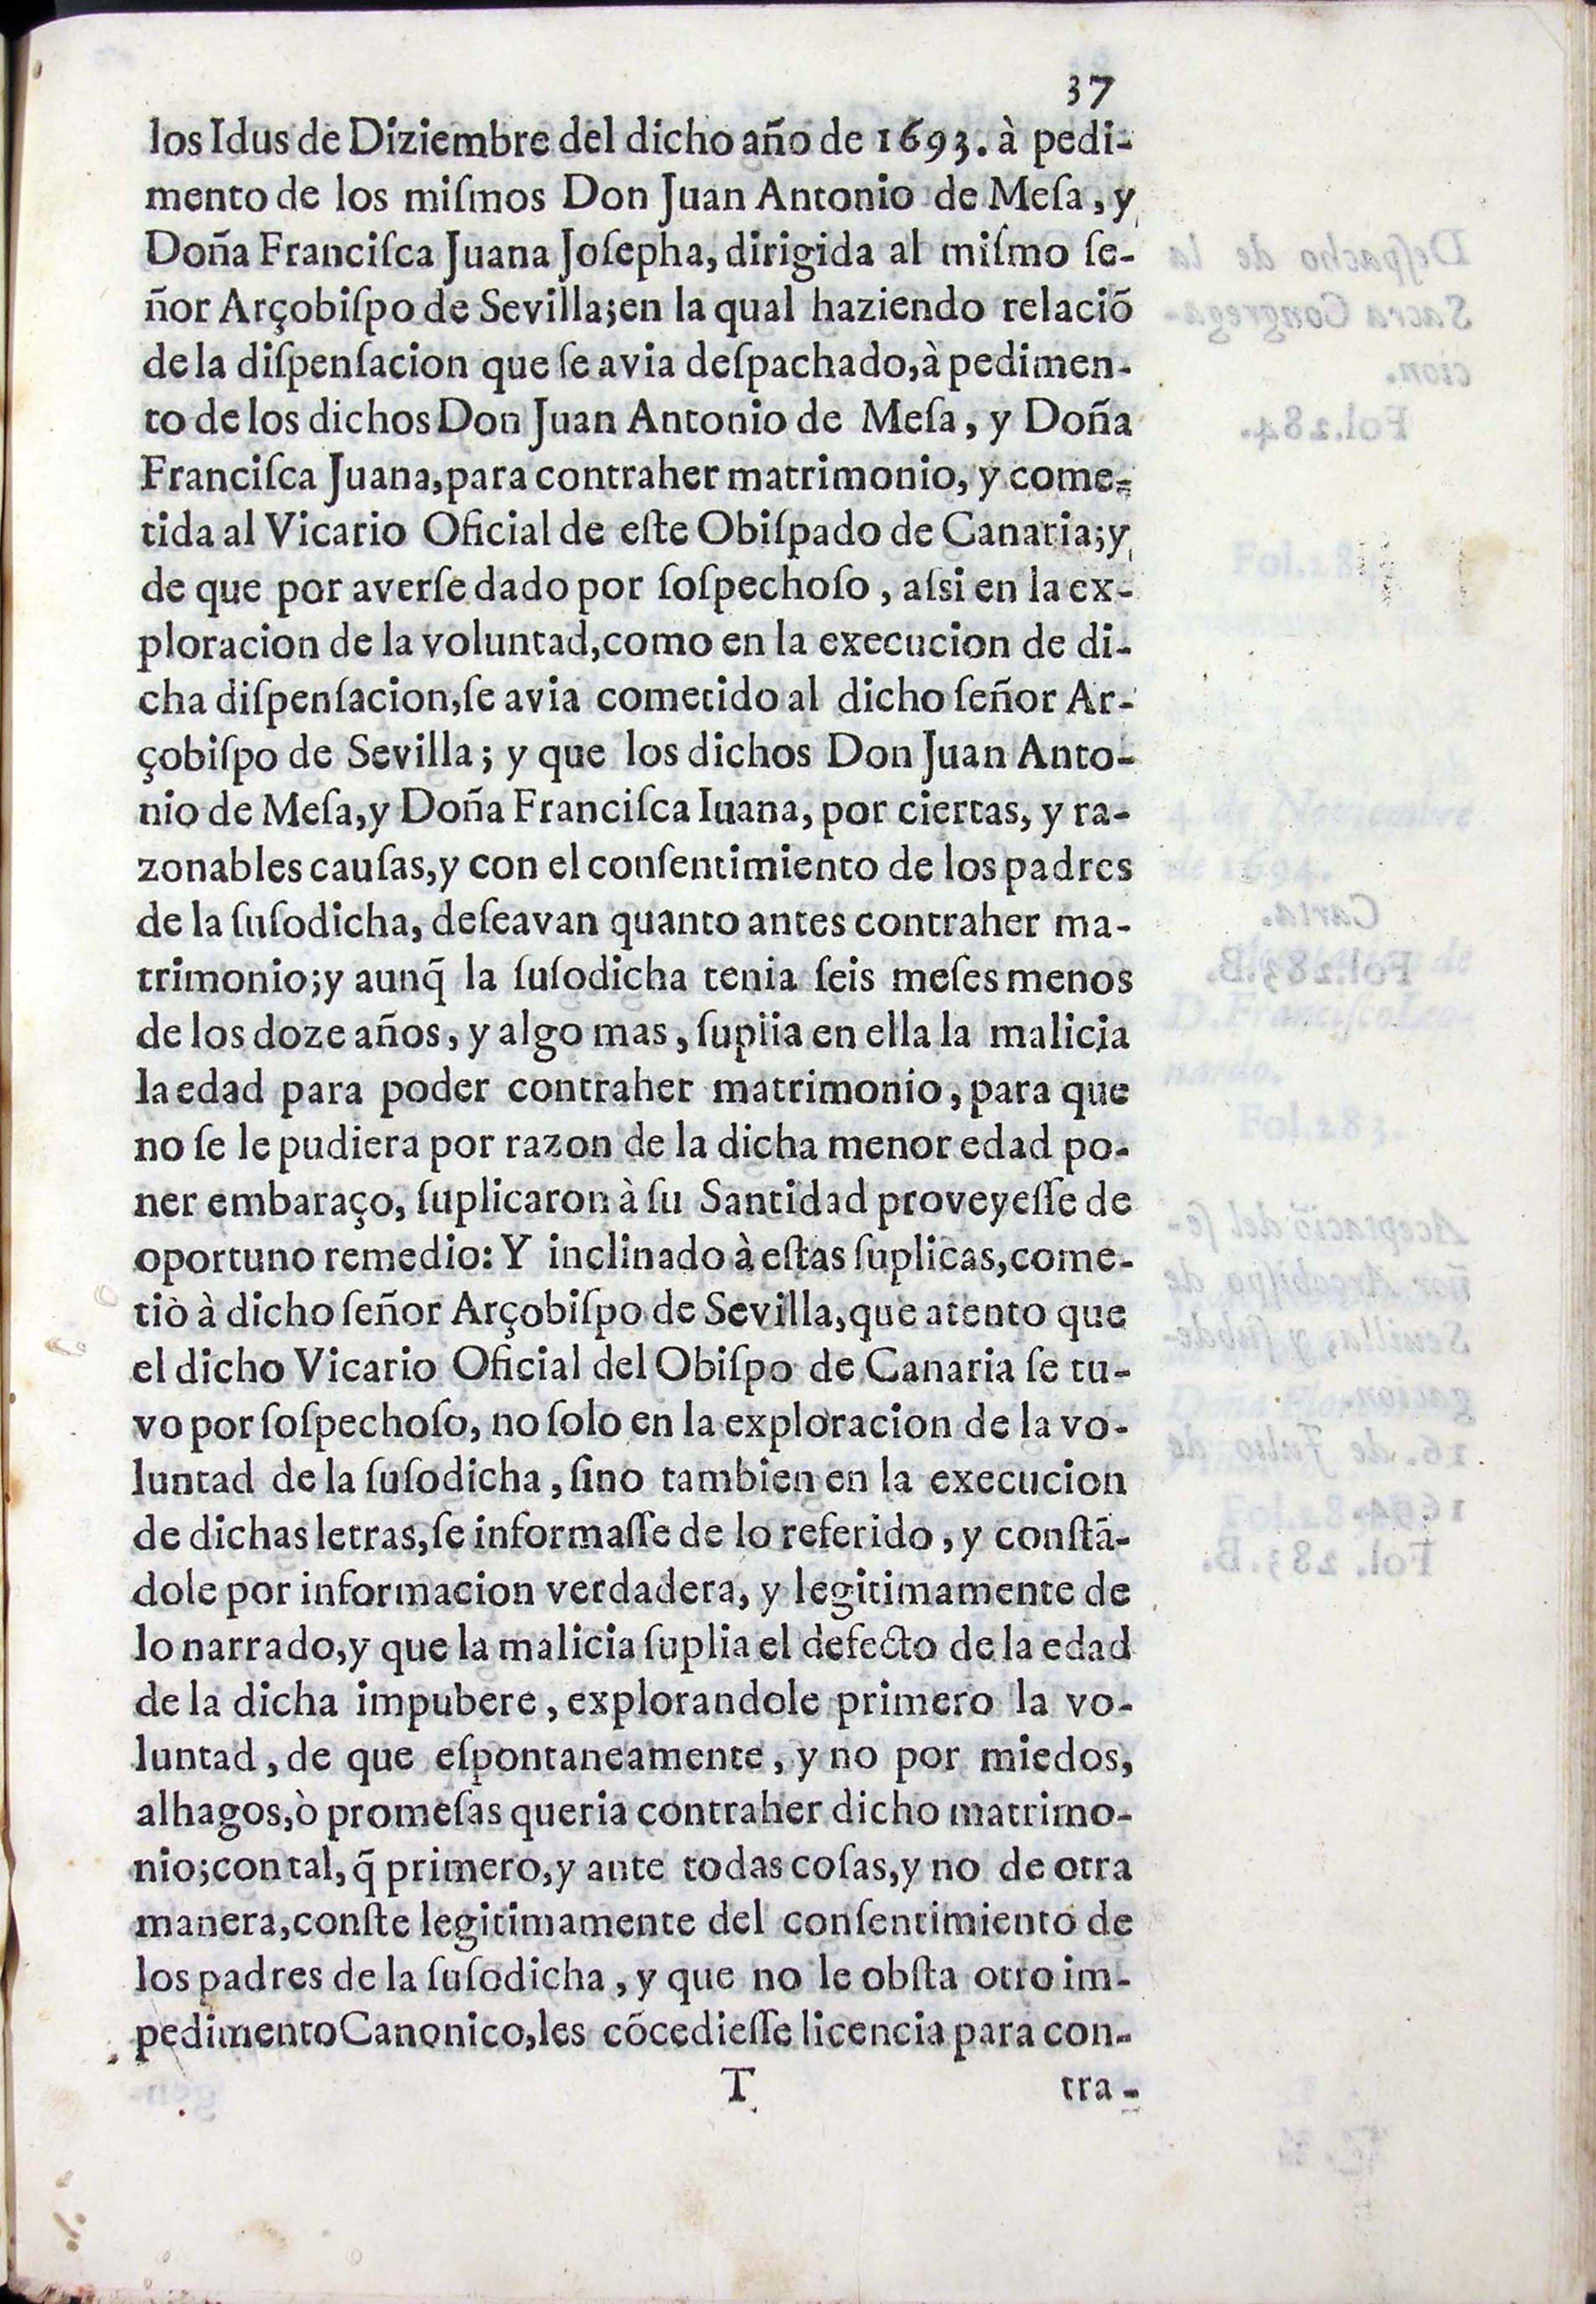 37
los Idus de Diziembre del dicho año de 1693. à pedi-
mento de los miſmos Don Juan Antonio de Meſa, y
Doña Franciſca Juana Joſepha, dirigida al miſmo ſe-
ñor Arçobiſpo de Sevilla; en la qual haziendo relaciõ
de la diſpenſacion que ſe avia deſpachado, à pedimen-
to de los dichos Don Juan Antonio de Meſa, y Doña
Franciſca Juana, para contraher matrimonio, y come-
tida al Vicario Oficial de eſte Obiſpado de Canaria; y
de que por averſe dado por ſoſpechoſo, aſsi en la ex-
ploracion de la voluntad, como en la execucion de di-
cha diſpenſacion, ſe avia cometido al dicho ſeñor Ar-
çobiſpo de Sevilla; y que los dichos Don Juan Anto-
nio de Meſa, y Doña Franciſca Iuana, por ciertas, y ra-
zonables cauſas, y con el conſentimiento de los padres
de la ſuſodicha, deſeavan quanto antes contraher ma-
trimonio; y aunq̃ la ſuſodicha tenia ſeis meſes menos
de los doze años, y algo mas, ſuplia en ella la malicia
la edad para poder contraher matrimonio, para que
no ſe le pudiera por razon de la dicha menor edad po-
ner embaraço, ſuplicaron à ſu Santidad proveyeſſe de
oportuno remedio: Y inclinado à eſtas ſuplicas, come-
tiò à dicho ſeñor Arçobiſpo de Sevilla, que atento que
el dicho Vicario Oficial del Obiſpo de Canaria ſe tu-
vo por ſoſpechoſo, no ſolo en la exploracion de la vo-
luntad de la ſuſodicha, ſino tambien en la execucion
de dichas letras, ſe informaſſe de lo referido, y conſtã-
dole por informacion verdadera, y legitimamente de
lo narrado, y que la malicia ſuplia el defecto de la edad
de la dicha impubere, explorandole primero la vo-
luntad, de que eſpontaneamente, y no por miedos,
alhagos, ò promeſas queria contraher dicho matrimo-
nio; con tal, q̃ primero, y ante todas coſas, y no de otra
manera, conſte legitimamente del conſentimiento de
los padres de la ſuſodicha, y que no le obſta otro im-
pedimento Canonico, les cõcedieſſe licencia para con-
T tra-